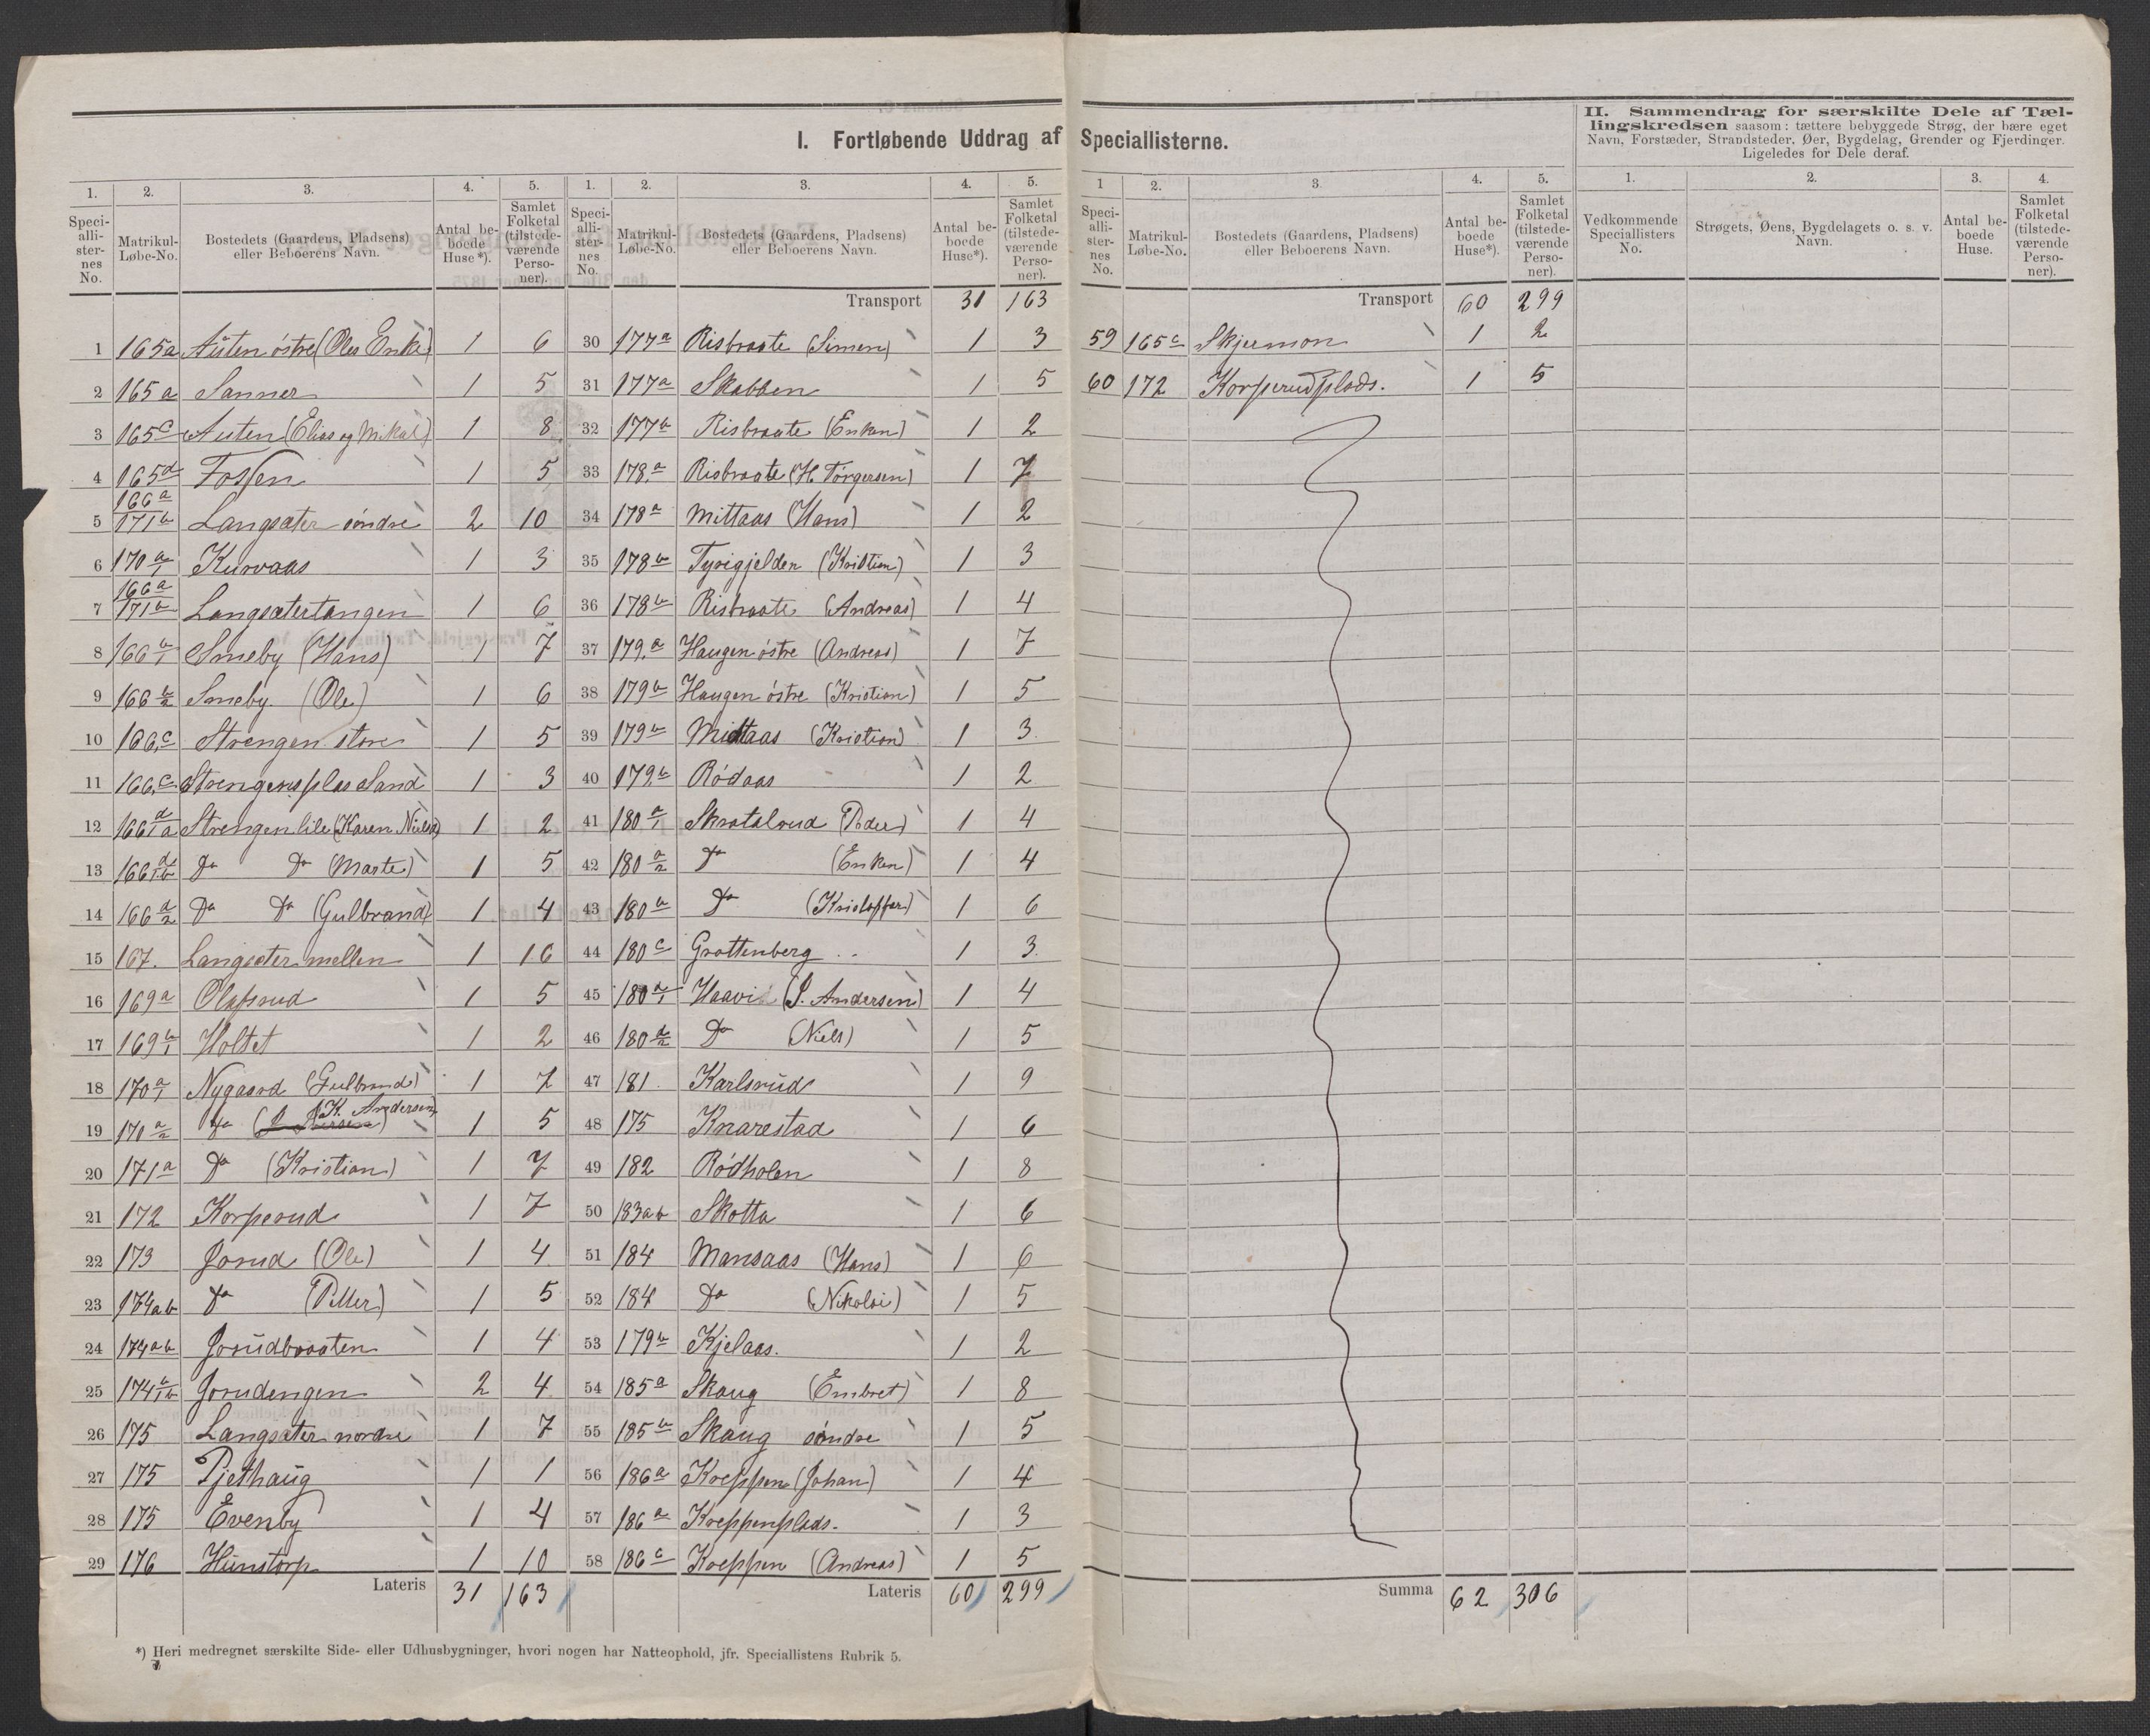 I. Fortløbende Uddrag af Speciallisterne.
II. Sammendrag for særskilte Dele af Tællingskredsen saasom: tættere bebyggede Strøg, der bære eget
Navn, Forstæder, Strandsteder, Øer, Bygdelag, Grender og Fjerdinger.
Ligeledes for Dele deraf.
1. 2. 3. 4. 5.
Speciallisternes No. Matrikul-Løbe-No. Bostedets (Gaardens, Pladsens) eller Beboerens Navn. Antal beboede Huse*). Samlet Folketal (tilstedeværende Personer).
1 165a Austen østre (Oles Enke) 1 6
2 165a Sanner 1 5
3 165c Austen (Elias og Mikal) 1 8
4 165d Fossen 1 5
5 166a 171b Langsæter søndre 2 10
6 170a/1 Kurvaas 1 3
7 166a 171b Langsætertangen 1 6
8 166b/1 Smeby (Hans) 1 7
9 166b/2 Smeby (Ole) 1 6
10 166c Strengen store 1 5
11 166c Strengensplas Sand 1 3
12 166d/1a Strengen lile (Karen Nielsd) 1 2
13 166d/1b Do Do (Marte) 1 5
14 166d/2 Do Do (Gulbrand) 1 4
15 167. Langsæter mellen 1 16
16 169a Olafsrud 1 5
17 169b/1 Holtet 1 2
18 170a/1 Nygaard (Gulbrand) 1 7
19 170a/2 Do (K. Andersen) 1 5
20 171a Do (Kristian) 1 7
21 172 Korperud 1 7
22 173 Jorud (Ole) 1 4
23 174ab Do (Petter) 1 5
24 174ab Jorudbraaten 1 4
25 174b/1b Jorudengen 2 4
26 175 Langsæter nordre 1 7
27 175 Pjethaug 1 1
28 175 Evenby 1 4
29 176 Hunstorp 1 10
Lateris 31 163
1. 2. 3. 4. 5.
Speciallisternes No. Matrikul-Løbe-No. Bostedets (Gaardens, Pladsens) eller Beboerens Navn. Antal beboede Huse*). Samlet Folketal (tilstedeværende Personer).
Transport 31 163
30 177a Risbraate (Simen) 1 3
31 177a Skabben 1 5
32 177b Risbraate (Enken) 1 2
33 178.a Risbraate (H. Torgersen) 1 7
34 178a Mittaas (Hans) 1 2
35 178b Tyrigjelden (Kristian) 1 3
36 178b Risbraate (Andreas) 1 4
37 179.a Haugen østre (Andreas) 1 7
38 179b Haugen østre (Kristian) 1 5
39 179b Midtaas (Kristian) 1 3
40 179.b Rødaas 1 2
41 180a/1 Skratalrud (Peder) 1 4
42 180a/2 Do (Enken) 1 4
43 180a Do (Kristoffer) 1 6
44 180c Grottenberg 1 3
45 180 Haavi (J. Andersen) 1 4
46 180d/2 Do (Niels) 1 5
47 181 Karlsrud 1 9
48 175 Knarestad 1 6
49 182 Rødholen 1 8
50 183ab Skotta 1 6
51 184 Mansaas (Hans) 1 6
52 184 Do (Nikolai) 1 5
53 179b Kjelaas. 1 2
54 185a Skaug (Embret) 1 8
55 185b Skaug søndre 1 5
56 186a Kreppen (Johan) 1 4
57 186a Kreppenplads. 1 3
58 186c Kreppen (Andreas) 1 5
Lateris 60 299
*) Heri medregnet særskilte Side- eller Udhusbygninger, hvori nogen har Natteophold, jfr. Speciallistens Rubrik 5.
1 2. 3. 4. 5.
Speciallisternes No. Matrikul-Løbe-No. Bostedets (Gaardens, Pladsens) eller Beboerens Navn. Antal beboede Huse*). Samlet Folketal (tilstedeværende Personer).
Transport 60 299
59 165c Skjermon 1 2
60 172 Korperudplads. 1 5
Summa 62 306
1. 2. 3. 4.
Vedkommende Speciallisters No. Strøgets, Øens, Bygdelagets o. s. v. Navn. Antal beboede Huse. Samlet Folketal (tilstedeværende Personer).